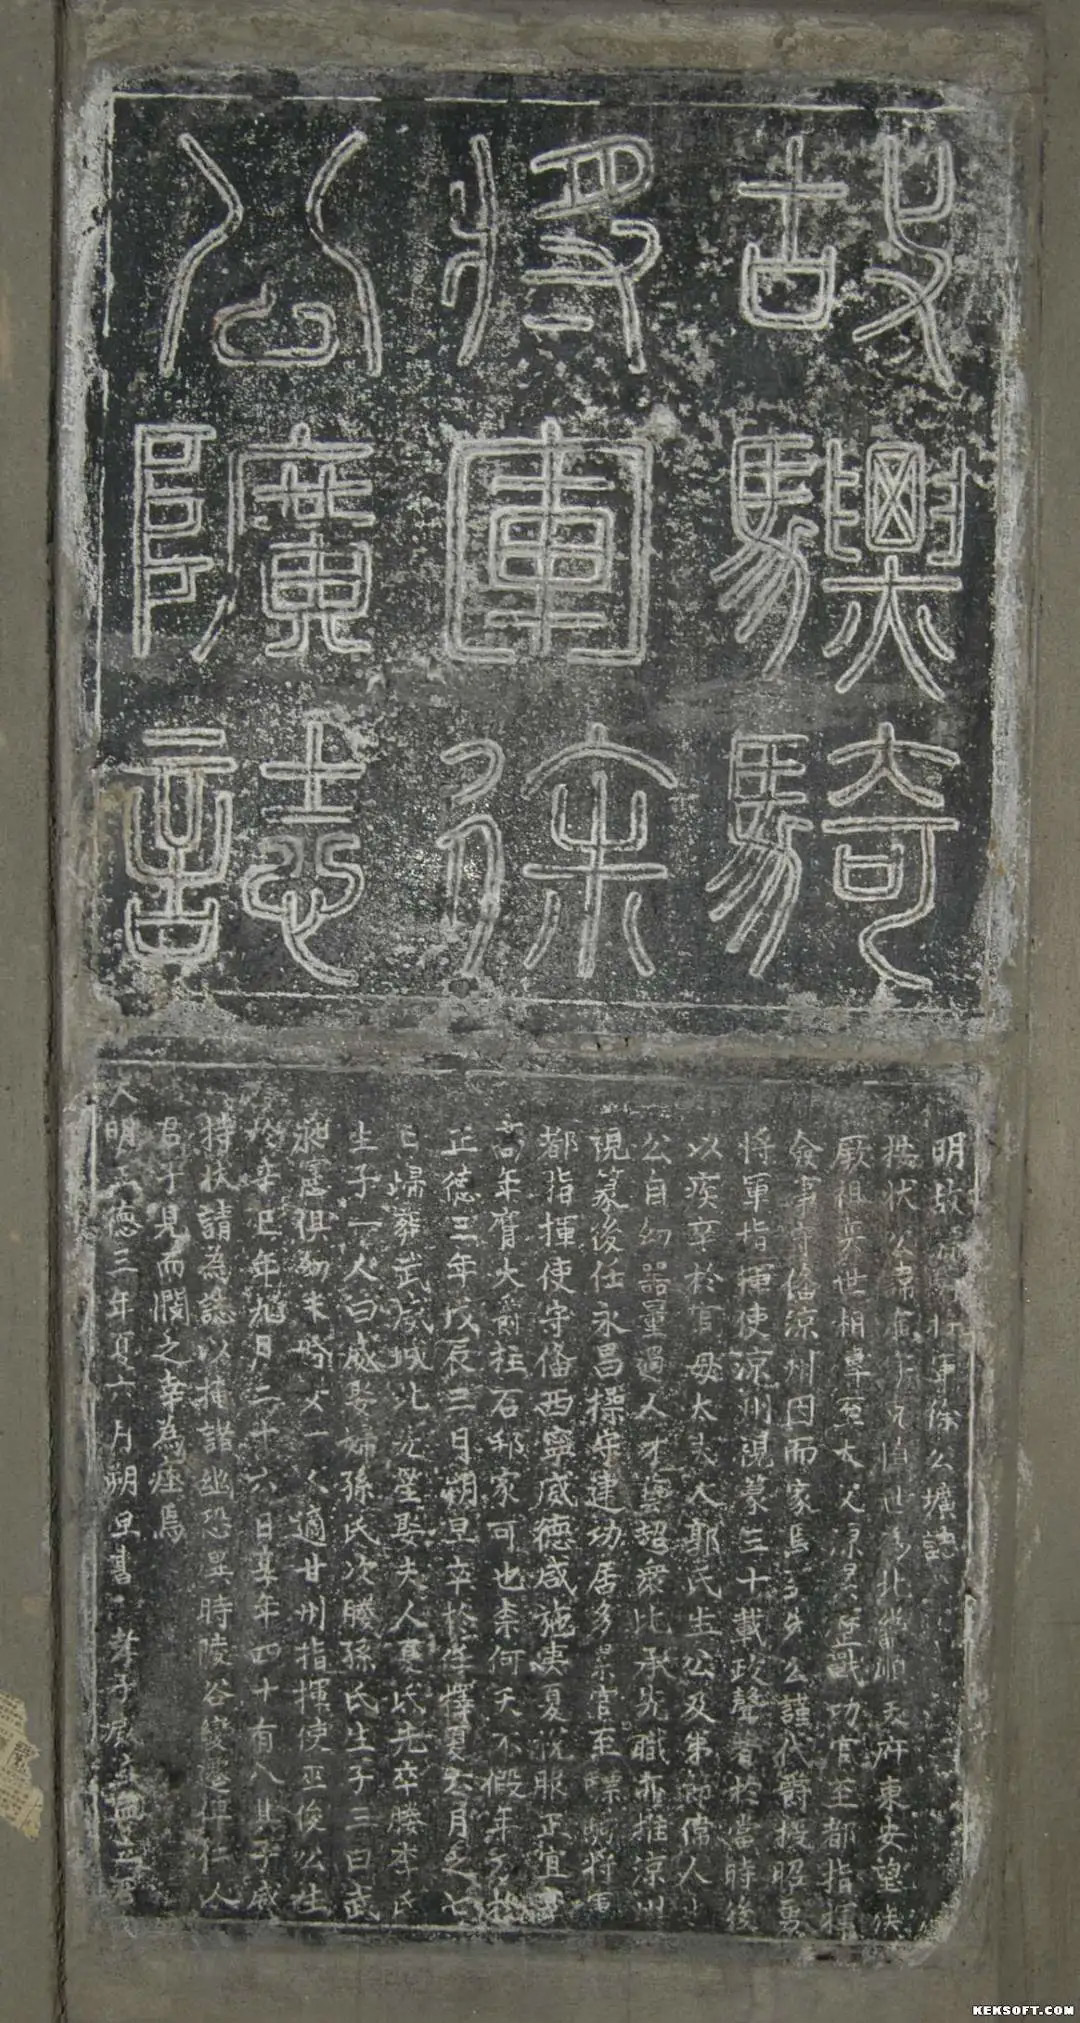 故驃騎
將軍徐
公壙誌
明故驃騎將軍徐公壙誌
據狀公諱 世 北 順天府東安望族
厥祖 世相 至大父 戰功官至都指揮
僉事守俻凉州因而家焉 公謹代爵授昭勇
將軍指揮使凉州視篆三十載政聲著於當時後
以疾卒於官母太夫人郭氏生公及弟 偉人
公自幻器量過人才藝超衆比承先職亦推凉州
視篆後任永昌操守建功居多累官至驃騎將軍
都指揮使守俻西寧威德咸施夷夏悅服正宜
高年膺大爵柱石邦家可也柰何天不假年乃於
正德三年戊辰三月朔旦卒於 擇夏六月 七
日歸葬武威城北 塋娶夫人夏氏先卒媵李氏
生子一人曰威娶婦孫氏次媵孫氏生子三曰武
憲俱幼未 女一人適甘州指揮使巫俊公生
於辛巳年九月二十六日享年四十有八其子威
持狀請為誌以 諸幽恐異時陵谷變遷 仁人
君子見而憫之幸為瘞焉
大明正德三年夏六月朔旦書 孝子威
KEKSOFT.COM